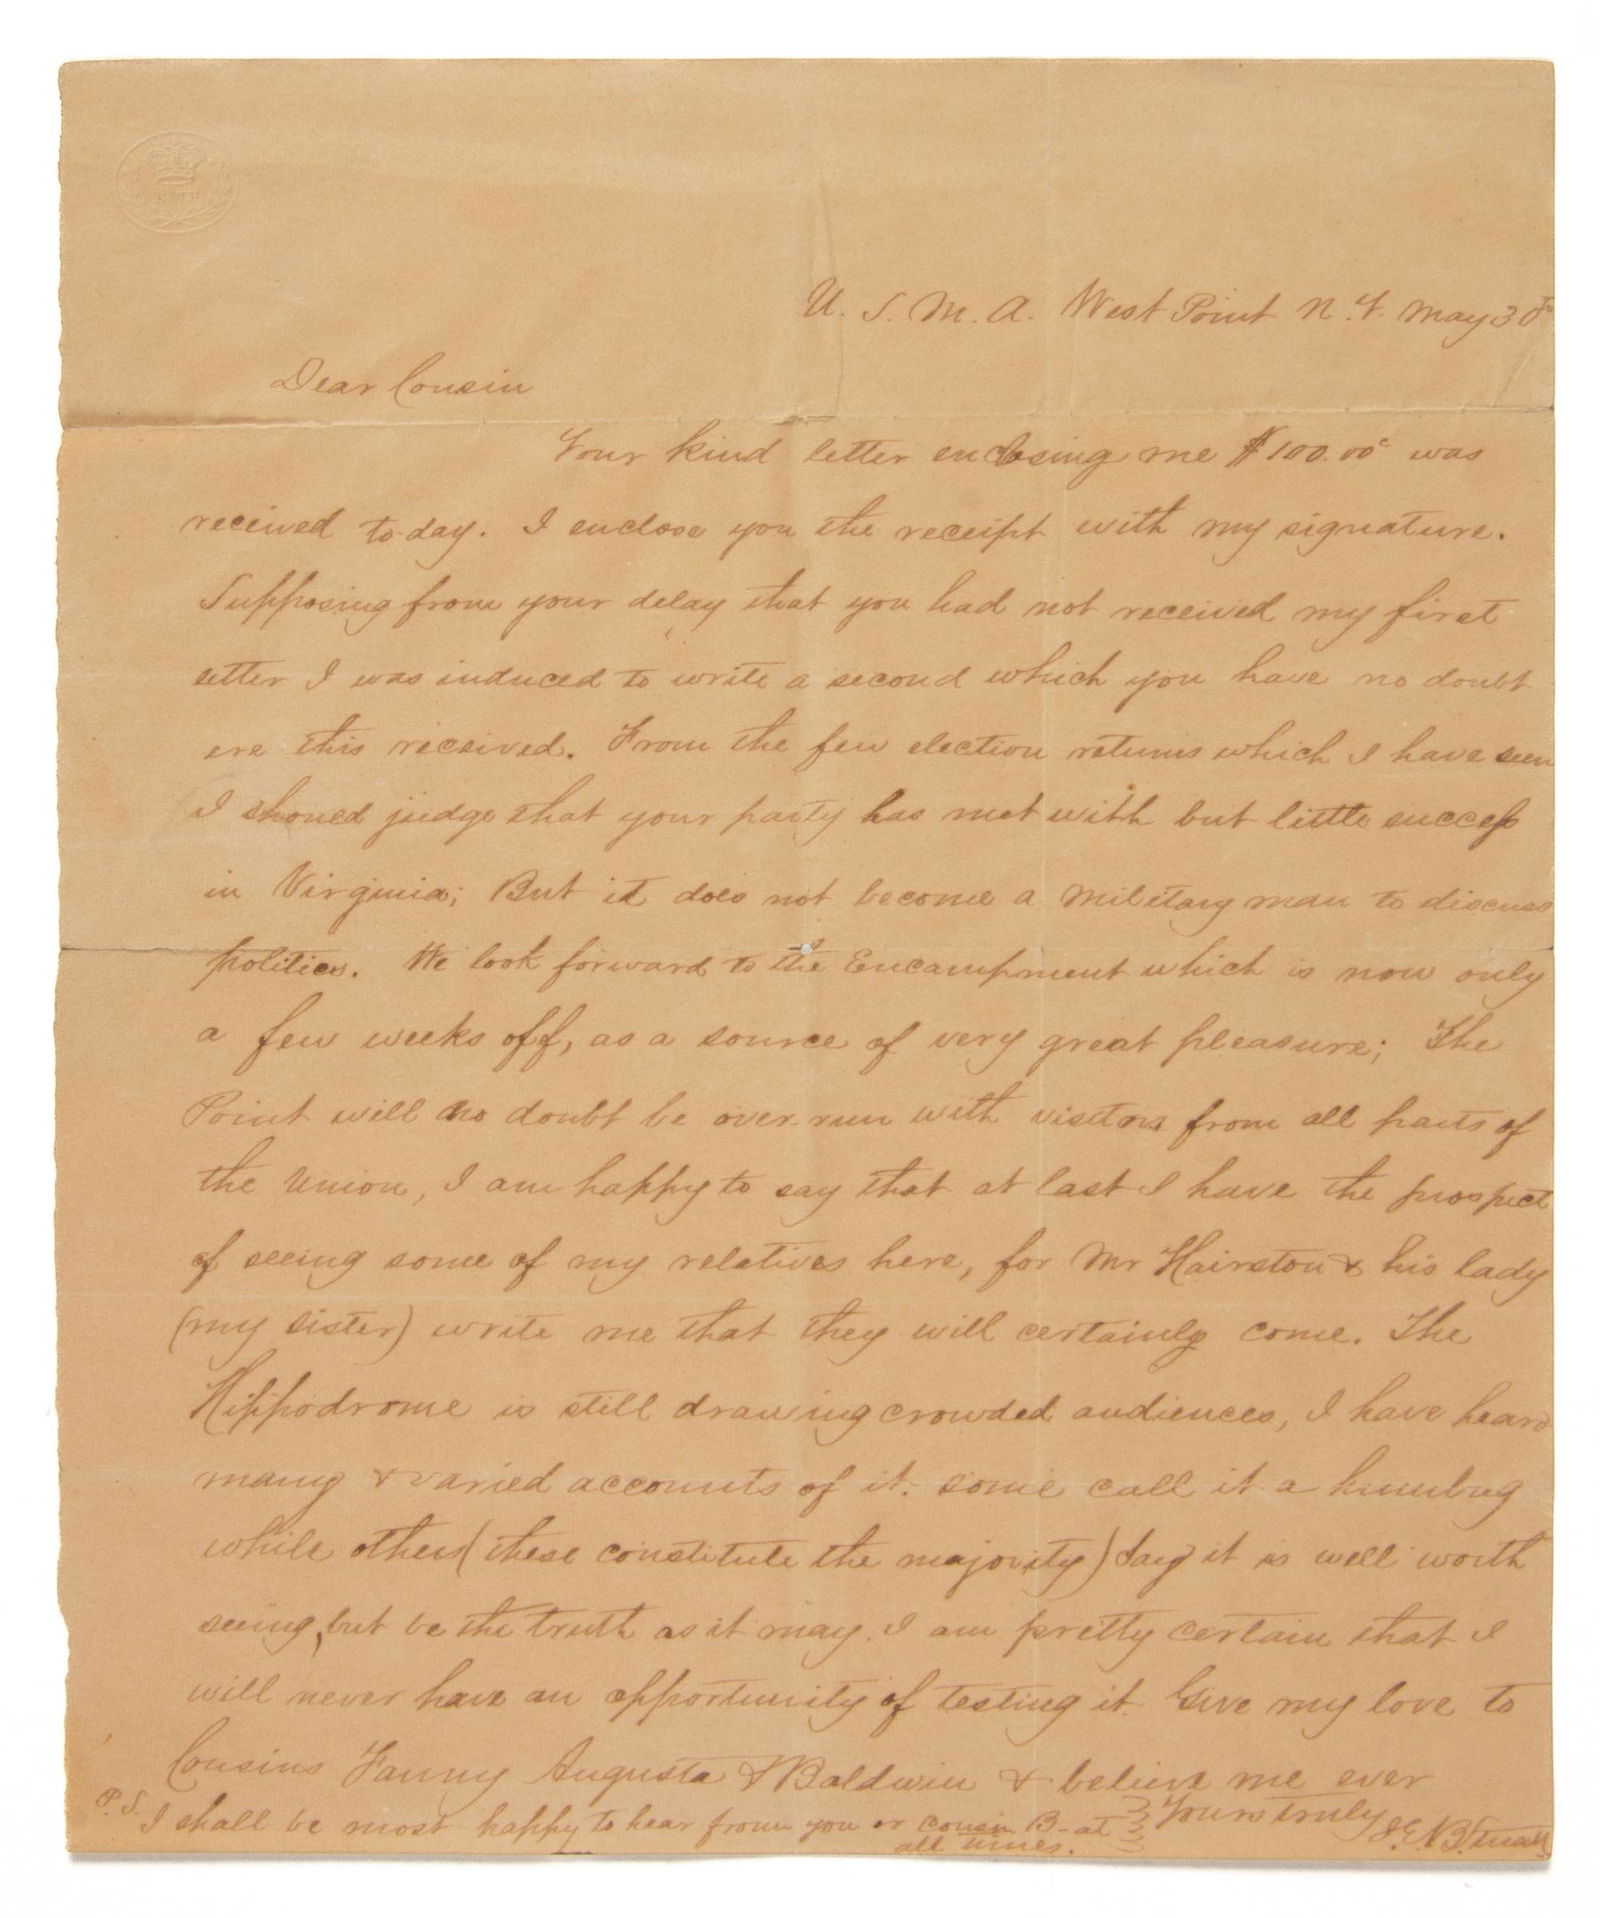 BATH
U. S. M. A. West Point N. Y. May 30th
Dear Cousin
Your kind letter enclosing me $100.00c was
received to day. I enclose you the receipt with my signature.
Supposing from your delay that you had not received my first
letter I was induced to write a second which you have no doubt
ere this received. From the few election returns which I have seen
I should judge that your party has met with but little success
in Virginia; But it does not become a military man to discuss
politics. We look forward to the Encampment which is now only
a few weeks off, as a source of very great pleasure; The
Point will no doubt be over run with visitors from all parts of
the Union, I am happy to say that at last I have the prospect
of seeing some of my relatives here, for Mr Hairston & his lady
(my sister) write me that they will certainly come. The
Hippodrome is still drawing crowded audiences, I have heard
many & varied accounts of it. some call it a humbug
while others (these constitute the majority) Say it is well worth
seeing, but be the truth as it may. I am pretty certain that I
will never have an opportunity of testing it. Give my love to
Cousins Fanny Augusta & Baldwin & believe me ever
Yours truly
J. E. B. Stuart
P. S. I shall be most happy to hear from you or cousin B- at
all times.